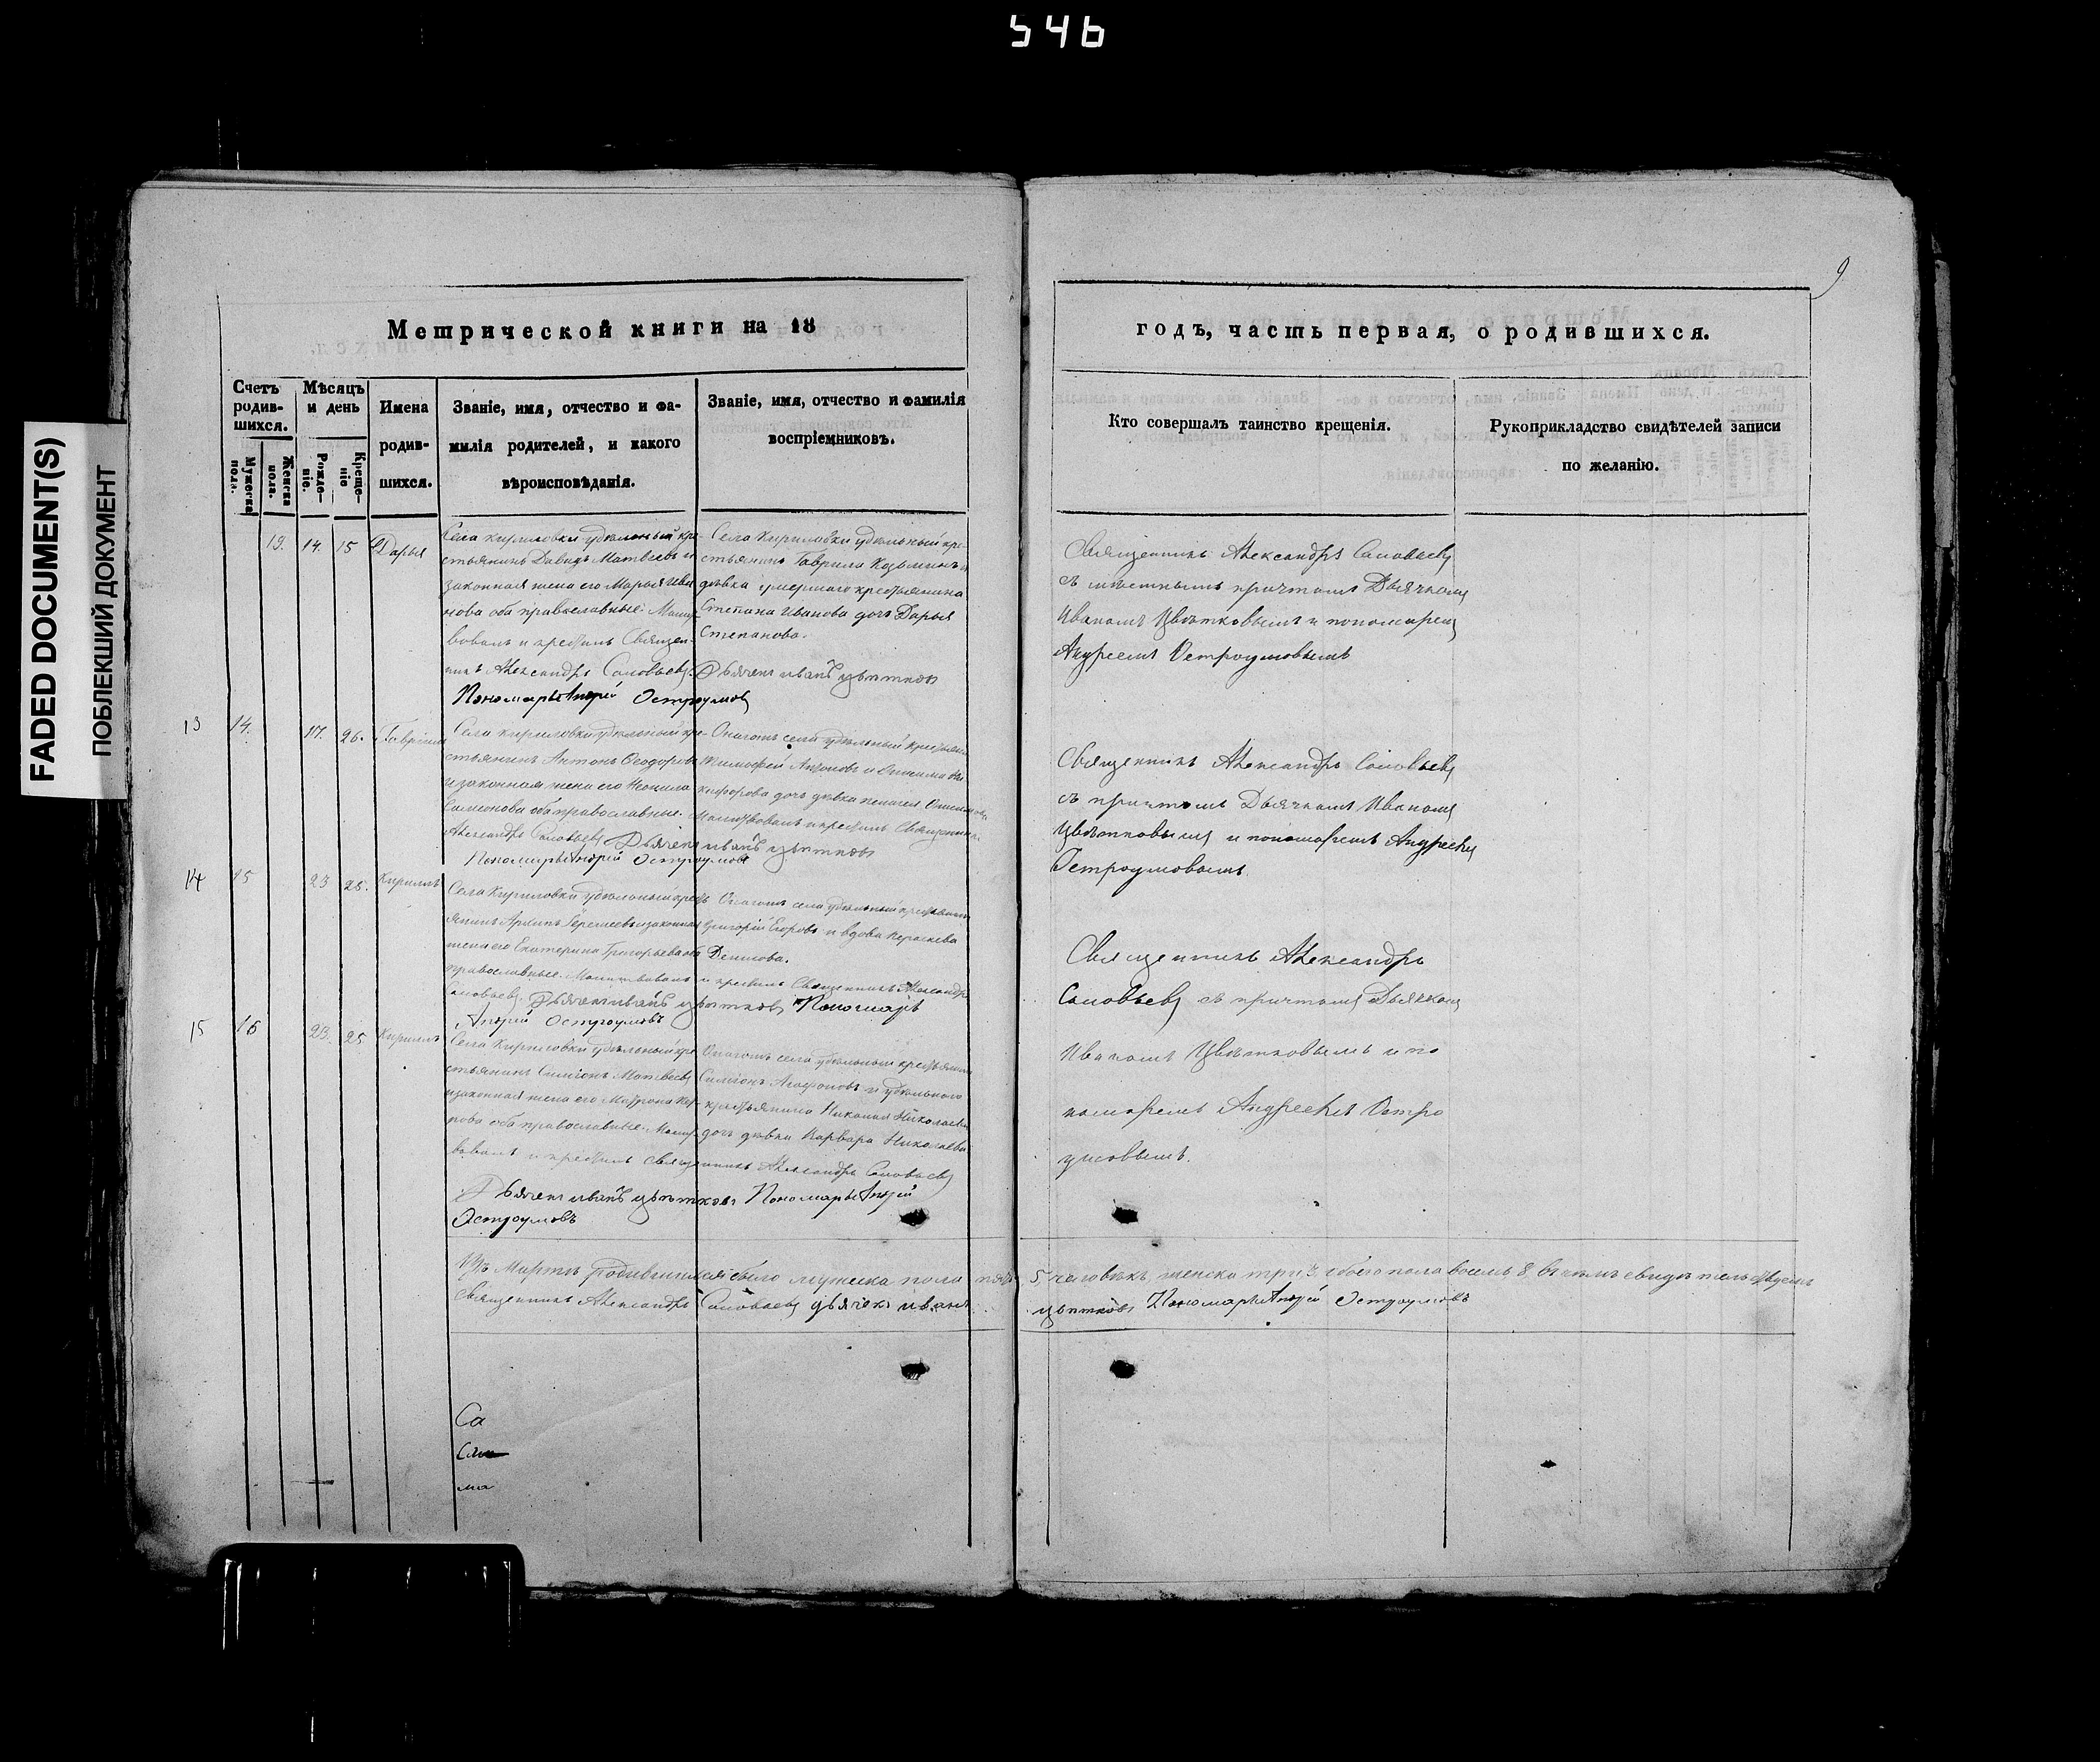 546
FADED DOCUMENT(S)
ПОБЛЕКШИЙ ДОКУМЕНТ
9
Метрической книги на 18
годъ, часть первая, о родившихся.
Счетъ родив-шихся.
Мужеска пола.
Женска пола.
Мѣсяцъ и день
Рожде-ніе.
Креще-ніе
Имена родив-шихся.
Званіе, имя, отчество и фа-
милія родителей, и какого
вѣроисповѣданія.
Званіе, имя, отчество и фамилія
воспріемниковъ.
Кто совершалъ таинство крещенія.
Рукоприкладство свидѣтелей записи
по желанію.
19. 14. 15 Дарья
Села Кириловки удѣльный кре-
стьянинъ Давидъ Матвеевъ и
законная жена его Марья Ива
нова оба православные. Молит-
вовалъ и крестилъ Священ-
никъ Александръ Соловьевъ. Дьячекъ иванъ цвѣтковъ
Пономарь Андрей Остроумовъ
Села Кириловки удѣльный кре-
стьянинъ Гаврила Козьминъ и
дѣвка умершаго крестьянина
Степана Иванова дочь Дарья
Степанова.
Священникъ Александръ Соловьевъ
съ мѣстнымъ причтомъ Дьячкомъ
Иваномъ Цвѣтковымъ и пономаремъ
Андреемъ Остроумовымъ
13 14. 17. 26. Гаврiилъ
Села Кириловки удѣльный кре-
стьянинъ Антонъ Ѳеодоровъ
и законная жена его Неонила
Симеонова оба православные. Молитвовалъ и крестилъ Священникъ
Александръ Соловьевъ Дьячекъ иванъ цвѣтковъ
Пономарь Андрей Остроумовъ
Онагожъ села удѣльный крестьянинъ
Тимофей Антоновъ и
дочь дѣвка
Священникъ Александръ Соловьевъ
съ причтомъ Дьячкомъ Иваномъ
Цвѣтковымъ и пономаремъ Андреемъ
Остроумовымъ
14 15 23 25. Кириллъ
Села Кириловки удѣльный крест
янинъ Архипъ и законная
жена его Екатерина Григорьева оба
православные. Молитвовалъ и крестилъ Священникъ Александръ
Соловьевъ. Дьячекъ иванъ цвѣтковъ Пономарь
Андрей Остроумовъ
Онагожъ села удѣльный крестьянинъ
Григорій Егоровъ и вдова
Денисова.
Священникъ Александръ
Соловьевъ съ причтомъ Дьячкомъ
Иваномъ Цвѣтковымъ и по
номаремъ Андреемъ Остро
умовымъ.
15 16 23. 25 Кириллъ
Села Кириловки удѣльный кре
стьянинъ Симеонъ Матвеевъ
и законная жена его Матрона
оба православные. Молит-
вовалъ и крестилъ священникъ Александръ Соловьевъ
Дьячекъ иванъ цвѣтковъ Пономарь Андрей
Остроумовъ
Онагожъ села удѣльный крестьянинъ
Симеонъ и удѣльнаго
крестьянина Николая Николаева
дочь дѣвка Варвара Николаева
Въ Мартѣ родившихся было мужеска пола пять 5 человѣкъ, женска три 3, обоего пола восемь 8, въ чемъ свидѣтельствуемъ
священникъ Александръ Соловьевъ дьячекъ иванъ цвѣтковъ Пономарь Андрей Остроумовъ
Са
ма